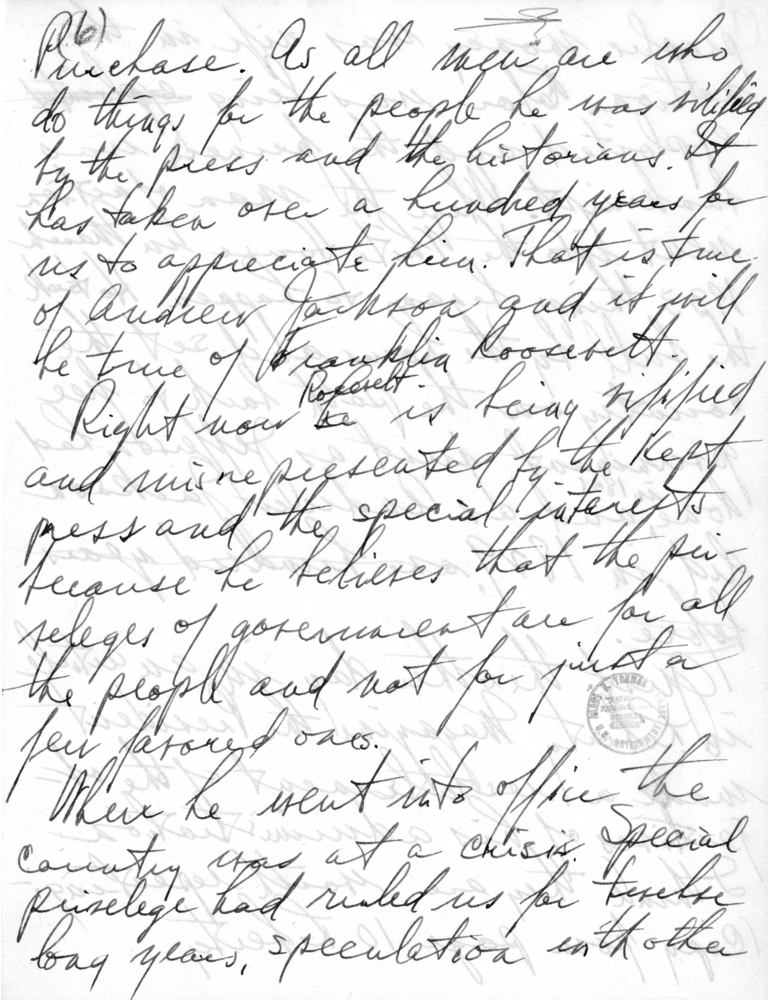 (6)
Purchase. As all men are who
do things for the people he was vilified
by the press and the historians. It
has taken over a hundred years for
us to appreciate him. That is true
of Andrew Jackson and it will
be true of Franklin Roosevelt.
Roosevelt
Right now he is being vilified
and misrepresented by the kept
press and the special interests
because he believes that the pri-
veleges of government are for all
the people and not for just a
few favored ones.
When he went into office the
country was at a crisis. Special
privelege had ruled us for twelve
long years, speculation with other